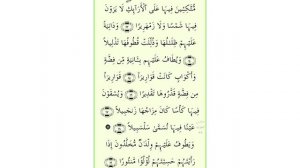 مُّتَّكِـِٔينَ فِيهَا عَلَى ٱلْأَرَآئِكِ لَا يَرَوْنَ
فِيهَا شَمْسًا وَلَا زَمْهَرِيرًا ۝ وَدَانِيَةً
عَلَيْهِمْ ظِلَٰلُهَا وَذُلِّلَتْ قُطُوفُهَا تَذْلِيلًا
۝ وَيُطَافُ عَلَيْهِم بِـَٔانِيَةٍ مِّن فِضَّةٍ
وَأَكْوَابٍ كَانَتْ قَوَارِيرَا۠ ۝ قَوَارِيرَا۟
مِن فِضَّةٍ قَدَّرُوهَا تَقْدِيرًا ۝ وَيُسْقَوْنَ
فِيهَا كَأْسًا كَانَ مِزَاجُهَا زَنجَبِيلًا ۝
عَيْنًا فِيهَا تُسَمَّىٰ سَلْسَبِيلًا ۝
وَيَطُوفُ عَلَيْهِمْ وِلْدَٰنٌ مُّخَلَّدُونَ إِذَا
رَأَيْتَهُمْ حَسِبْتَهُمْ لُؤْلُؤًا مَّنثُورًا ۝